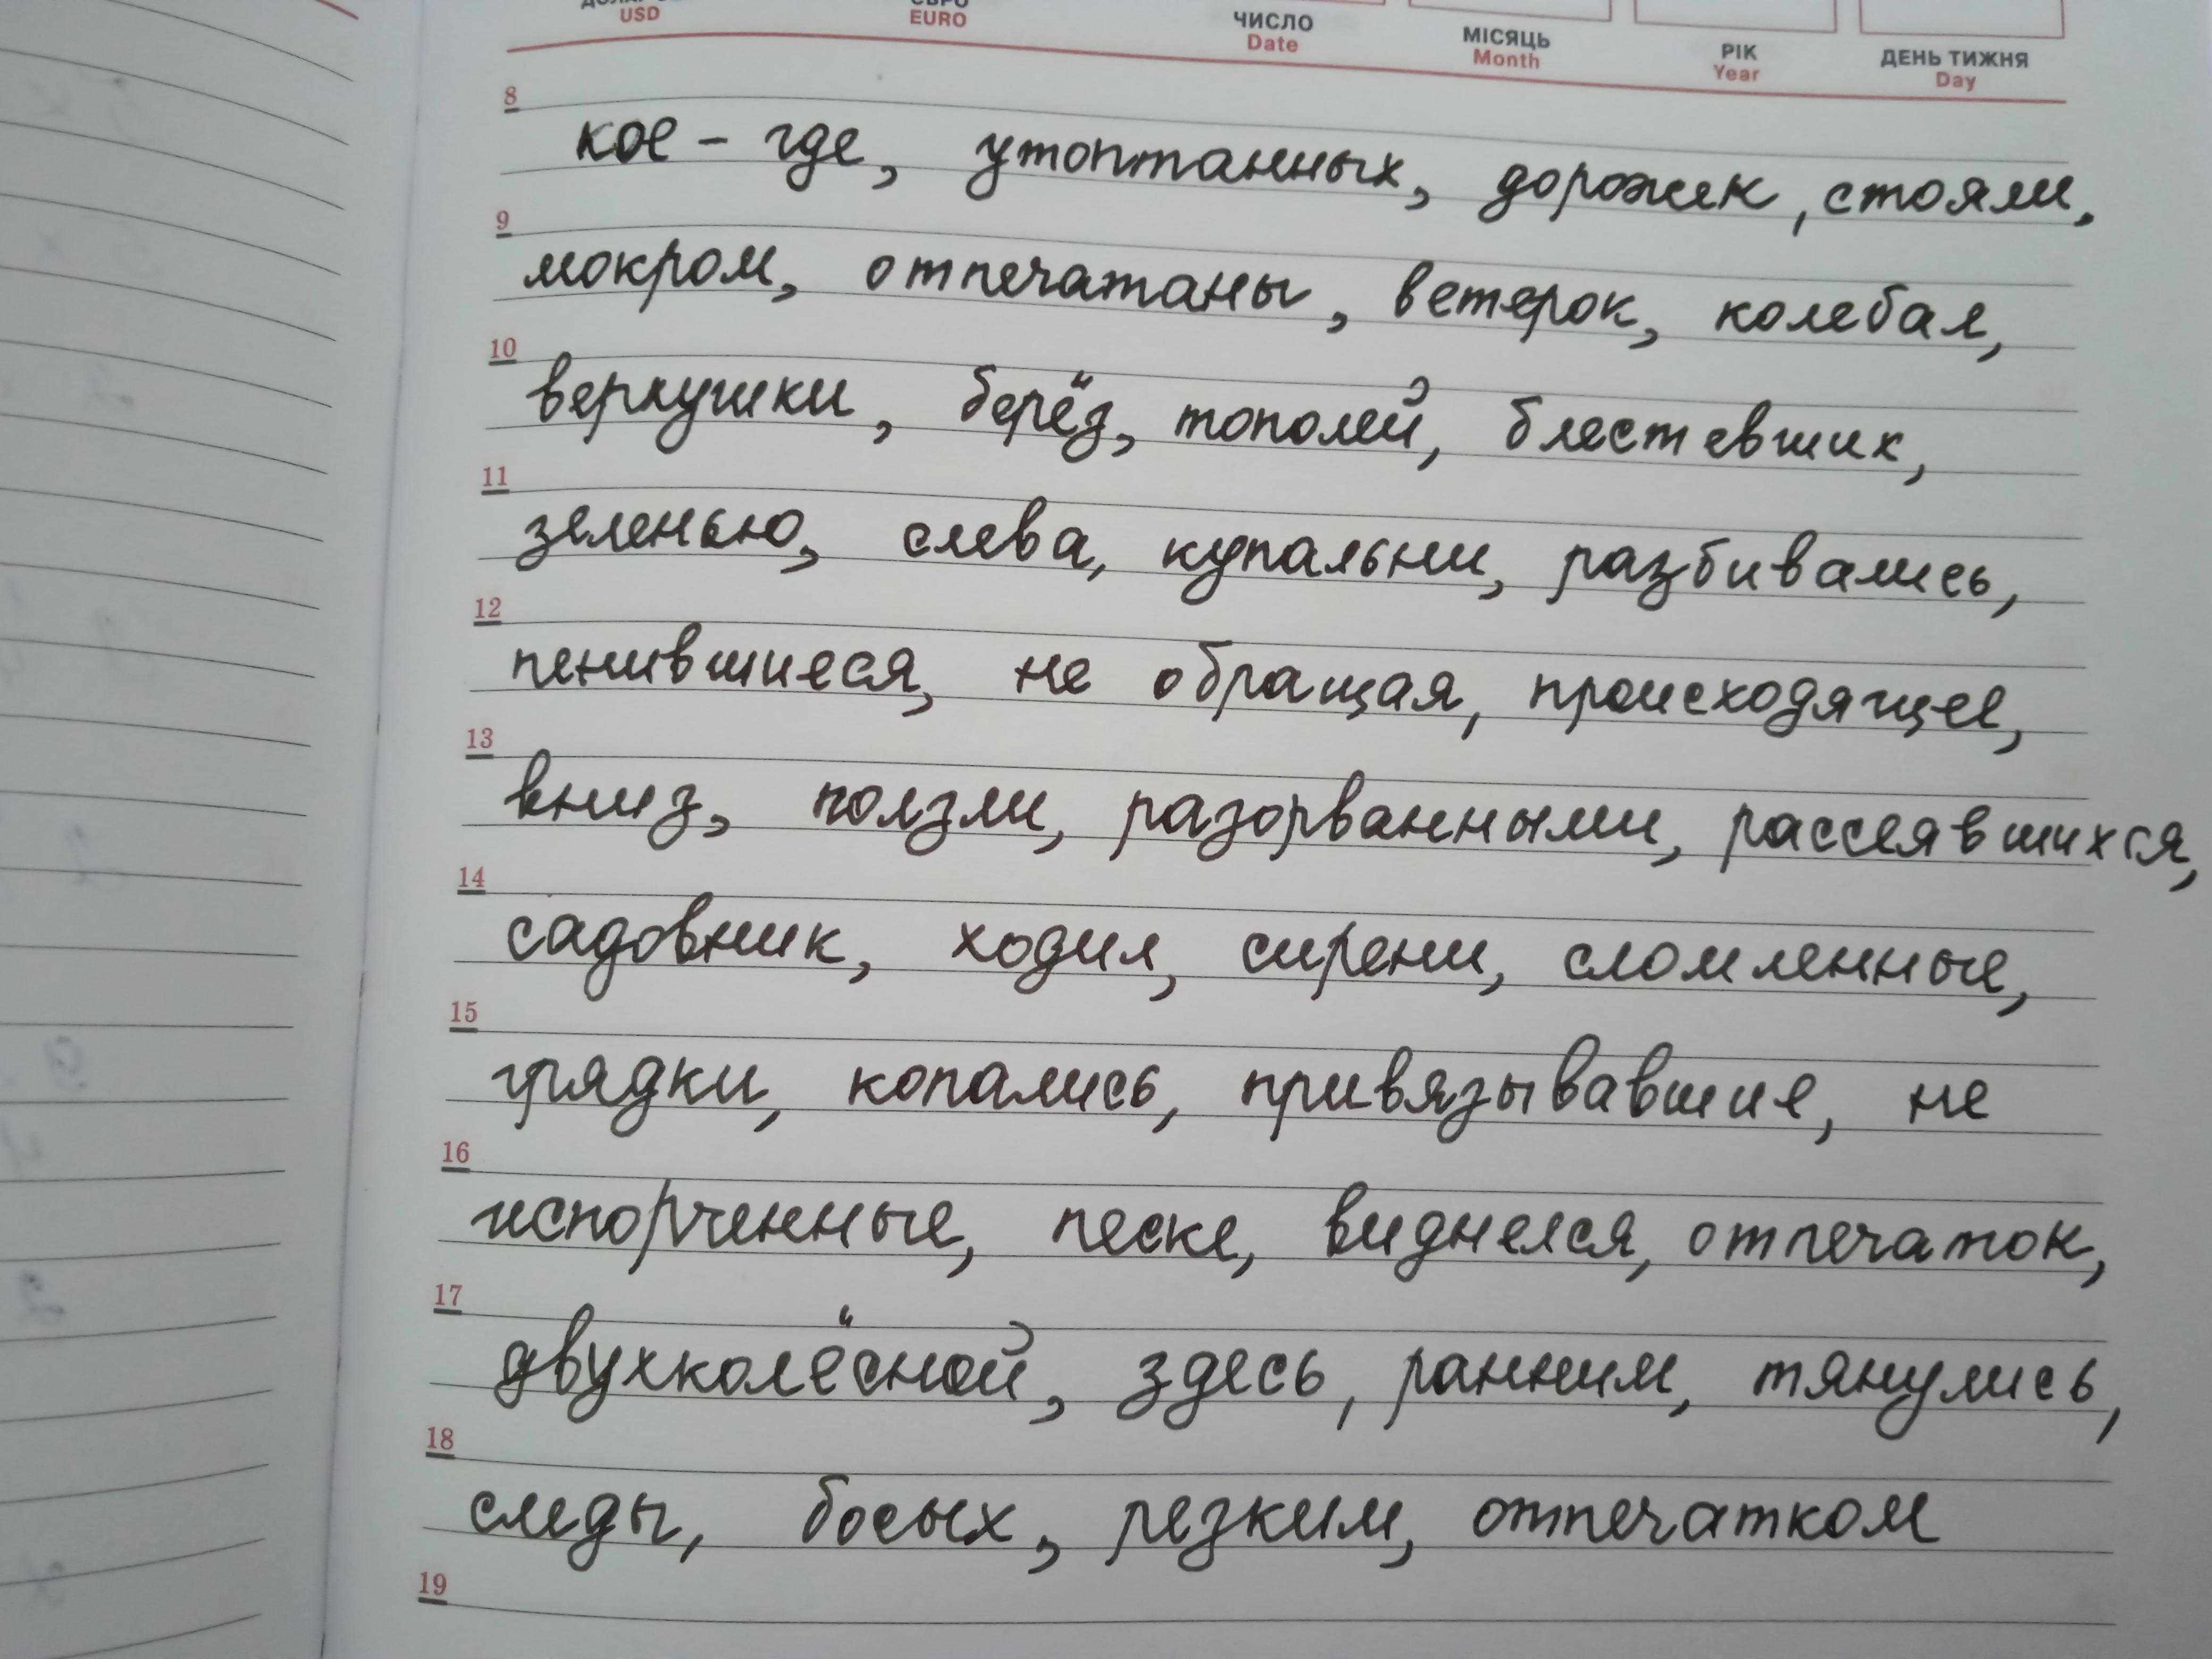 USD EURO ЧИСЛО МІСЯЦЬ РІК ДЕНЬ ТИЖНЯ
Date Month Year Day
8
кое - где, утоптанных, дорожек, стояли,
9
мокром, отпечатаны, ветерок, колебал,
10
верхушки, берёз, тополей, блестевших,
11
зеленью, слева, купальни, разбивались,
12
пенившиеся, не обращая, происходящее,
13
вниз, ползли, разорванными, рассеявшихся,
14
садовник, ходил, сирени, сломленные,
15
грядки, копались, привязывавшие, не
16
испорченные, песке, виднелся, отпечаток,
17
двухколёсной, здесь, ранним, тянулись,
18
следы, босых, резким, отпечатком
19